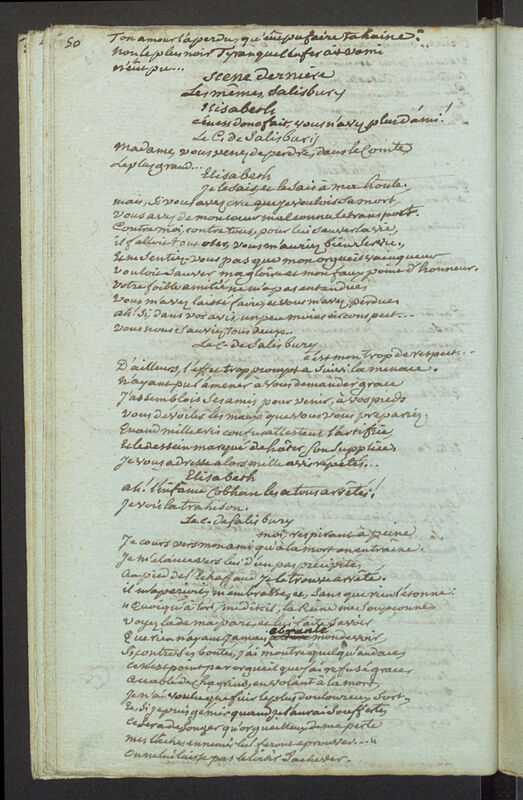 50
Ton amour l'a perdu, qu'eut pu faire ta haine?
Non le plus noir Tyran que l'enfer ait vomi
n'eut pu...
Scene derniere
Les mêmes, Salisbury
Elisabeth
c'en est donc fait, vous n'avez plus d'ami!
Le C. de Salisbury
Madame, vous venez de perdre, dans le Comte
Le plus grand...
Elisabeth
Je le sais, et le sais à ma honte.
mais, si vous avez cru que je voulois sa mort
vous avez de mon coeur mal connu le transport.
Contre moi, contre tous, pour lui sauver la vie,
il falloit tout oser, vous m'auriez bien servie.
Ne sentiez vous pas que mon orgueil vainqueur
vouloit sauver ma gloire et mon faux point d'honneur.
votre foible amitié ne m'a pas entendue
vous m'avez laissé faire, et vous m'avez perdue
ah! Si dans vos avis, un peu moins circonspect...
vous nous sauviez tous deux...
Le C. de Salisbury
c'est mon trop de respect...
D'ailleurs, l'effet trop prompt a suivi la menace.
n'ayant pu l'amener à vous demander grace
J'assemblois ses amis pour venir, à vos pieds
vous dévoiler les maux que vous vous prépariez.
Quand mille cris confus attestent l'artifice
Et le dessein marqué de hâter son supplice
Je vous adresse alors mille avis répétés...
Elisabeth
ah! l'infame Cobham les a tous arrêtés!
Je vois la trahison.
Le C. de Salisbury
moi, respirant à peine
Je cours vers mon ami qu'à la mort on entraine.
Je m'élance vers lui d'un pas précipité,
Au pié de l'échaffaud je le trouve arrêté.
il m'aperçoit, m'embrasse, et, sans que rien l'étonne:
« Quoiqu'à tort, me dit-il, la Reine me soupçonne
Voyez la de ma part, et lui faites savoir
Que rien n'ayant jamais ébranlé mon devoir
Si contre ses boutés, j'ai montré quelqu'audace
ce n'est point par orgueil que j'ai refusé grace
accablé de chagrins, en volant à la mort
Je n'ai voulu que fuir le plus douloureux sort.
Et, si je puis gémir quand je l'aurai soufferte,
ce sera de songer qu'orgueilleux de ma perte
mes lâches ennemis lui feront éprouver.... »
On ne lui laisse pas le loisir d'achever.